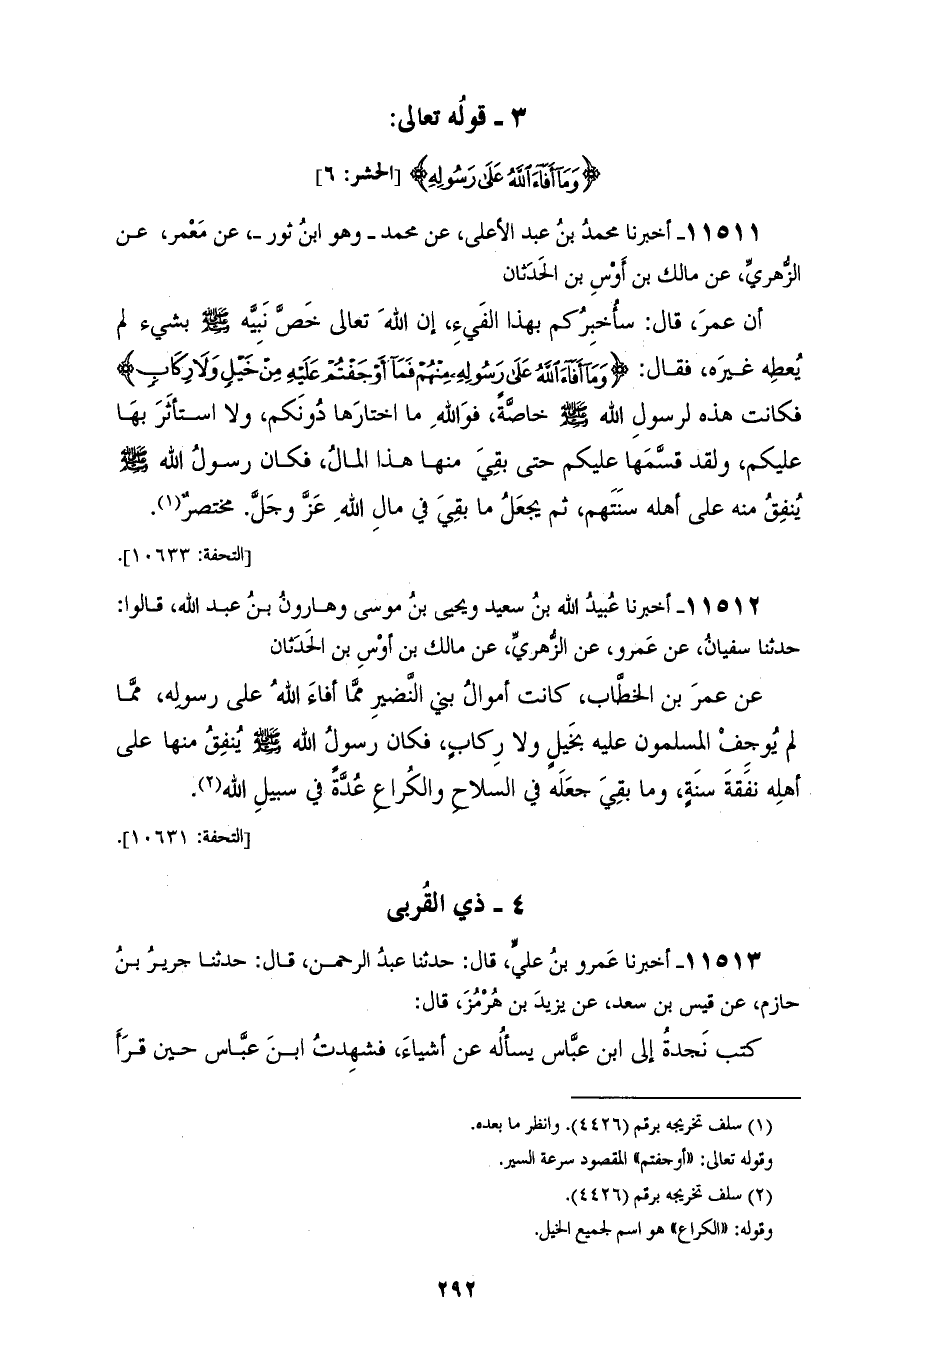 ٣ ـ قولُه تعالى:
﴿وَمَآ أَفَآءَ ٱللَّهُ عَلَىٰ رَسُولِهِ﴾ [الحشر: ٦]
١١٥١١ـ أخبرنا محمدُ بنُ عبد الأعلى، عن محمد ـ وهو ابنُ ثور ـ، عن مَعْمر، عـن
الزُّهريِّ، عن مالك بن أَوْسِ بن الحَدَثان
أن عمرَ، قال: سأُخبِرُكم بهذا الفَيءِ، إن اللهَ تعالى خَصَّ نَبِيَّه ﷺ بشيء لم
يُعطِه غـيرَه، فقـال: ﴿وَمَآ أَفَآءَ ٱللَّهُ عَلَىٰ رَسُولِهِۦ مِنْهُمْ فَمَآ أَوْجَفْتُمْ عَلَيْهِ مِنْ خَيْلٍ وَلَا رِكَابٍ﴾
فكـانت هـذه لرسولِ الله ﷺ خاصَّةً، فوَاللهِ ما اختارَها دُونَكم، ولا اسـتأثَرَ بهَـا
عليكم، ولقد قسَّمَها عليكم حتى بقِيَ منهـا هـذا المالُ، فكـان رسـولُ الله ﷺ
يُنفِقُ منه على أهله سنَتَهم، ثم يجعَلُ ما بقِيَ في مالِ اللهِ عَزَّ وجَلَّ. مختصرٌ(١).
[التحفة: ١٠٦٣٣].
١١٥١٢ـ أخبرنا عُبيدُ الله بنُ سعيد ويحيى بنُ موسى وهـارونُ بـنُ عبـد الله، قـالوا:
حدثنا سفيانُ، عن عَمرو، عن الزُّهريِّ، عن مالك بن أوْسِ بن الحَدَثان
عن عمرَ بن الخطَّاب، كانت أموالُ بني النَّضيرِ ممَّا أفاءَ اللهُ على رسولِه، ممَّـا
لم يُوجِفْ المسلمون عليه بخَيلٍ ولا رِكابٍ، فكان رسولُ الله ﷺ يُنفِقُ منها على
أهلِه نفَقَةَ سنَةٍ، وما بقِيَ جعَلَه في السلاحِ والكُراعِ عُدَّةً في سبيلِ الله(٢).
[التحفة: ١٠٦٣١].
٤ ـ ذي القُربى
١١٥١٣ـ أخبرنا عَمرو بنُ عليٍّ، قال: حدثنا عبدُ الرحمـن، قـال: حدثنـا جريـرُ بـنُ
حازم، عن قيس بن سعد، عن يزيدَ بن هُرْمُزَ، قال:
كتب نَجدةُ إلى ابن عبَّاس يسألُه عن أشياءَ، فشهِدتُ ابـنَ عبَّـاس حـين قـرَأَ
(١) سلف تخريجه برقم (٤٤٢٦). وانظر ما بعده.
وقوله تعالى: «أوجفتم» المقصود سرعة السير.
(٢) سلف تخريجه برقم (٤٤٢٦).
وقوله: «الكراع» هو اسم لجميع الخيل.
٢٩٢